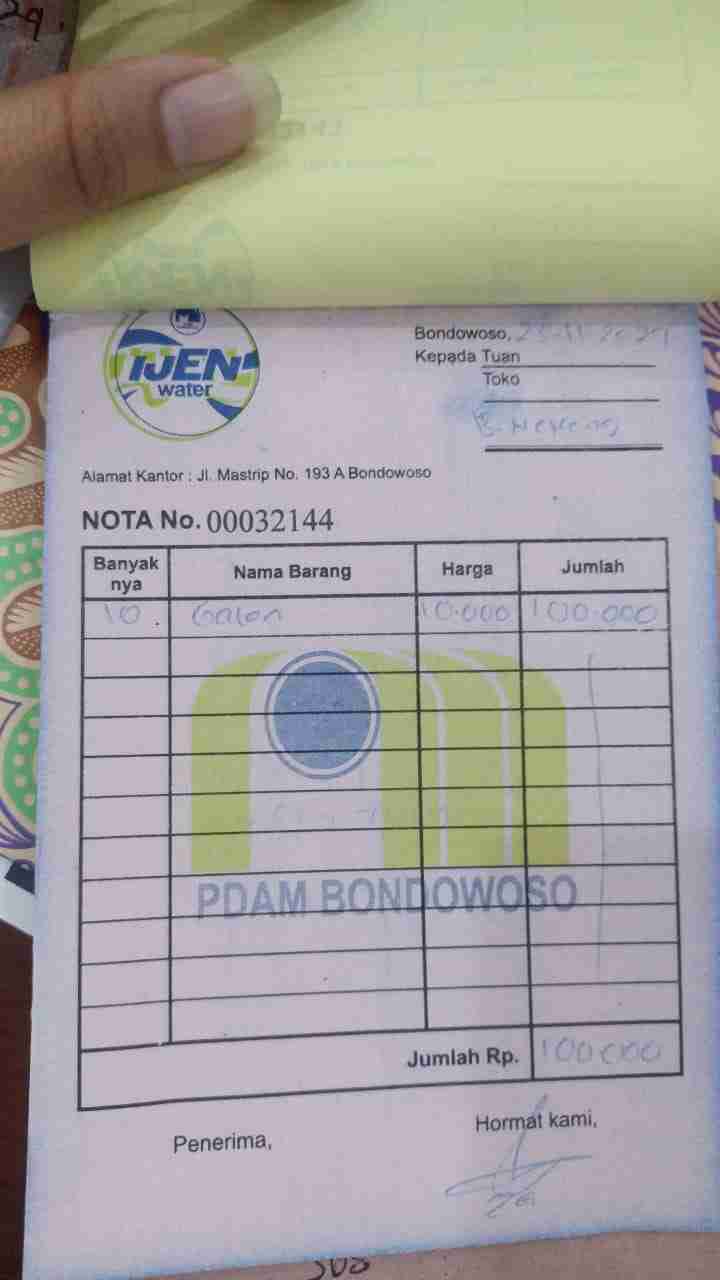 IJEN
water
Bondowoso, 23-11-2024
Kepada Tuan
Toko
Alamat Kantor : Jl. Mastrip No. 193 A Bondowoso
NOTA No. 00032144
Banyak nya Nama Barang Harga Jumlah
10 Galon 10.000 100.000
PDAM BONDOWOSO
Jumlah Rp. 100.000
Penerima, Hormat kami,